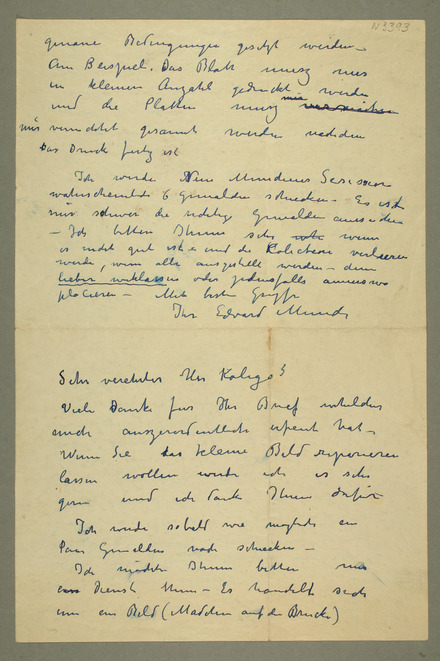 N 2393
genaue Bedingungen gesetzt werden –
Am Beispiel. Das Blatt musz nur
in kleinem Anzahl gedruckt werden
und die Platten musz mir
mir vernichtet gesammt werden nachdem
Das Druck fertig ist
Ich werde Neue Münchener Sesission
wahrscheinlich 6 Gemälden schicken – Es ist
mir schwer die richtige Gemälden
– Ich bitten Ihnen sehr wenn
es nicht gut ist und die Kolletion verlieren
werde, wenn alle ausgestellt werden – dann
lieber weklassen oder jedenfalls anderswo
placieren – Mit besten Grüsse
Ihr Edvard Munch
Sehr verehrter Her Kolege!
Viele Danke für Ihr Brief welches
mich auszerordentlich erfreut hat –
Wenn Sie das kleine Bild reparieren
lassen wollen werde ich es sehr
gern und ich danke Ihnen dafür
Ich werde sobald wie möglich ein
Paar Gemälden noch schicken –
Ich möchte Ihnen bitten mir
ein Dienst thun – Es handelt sich
um ein Bild (Mädchen auf der Brücke)